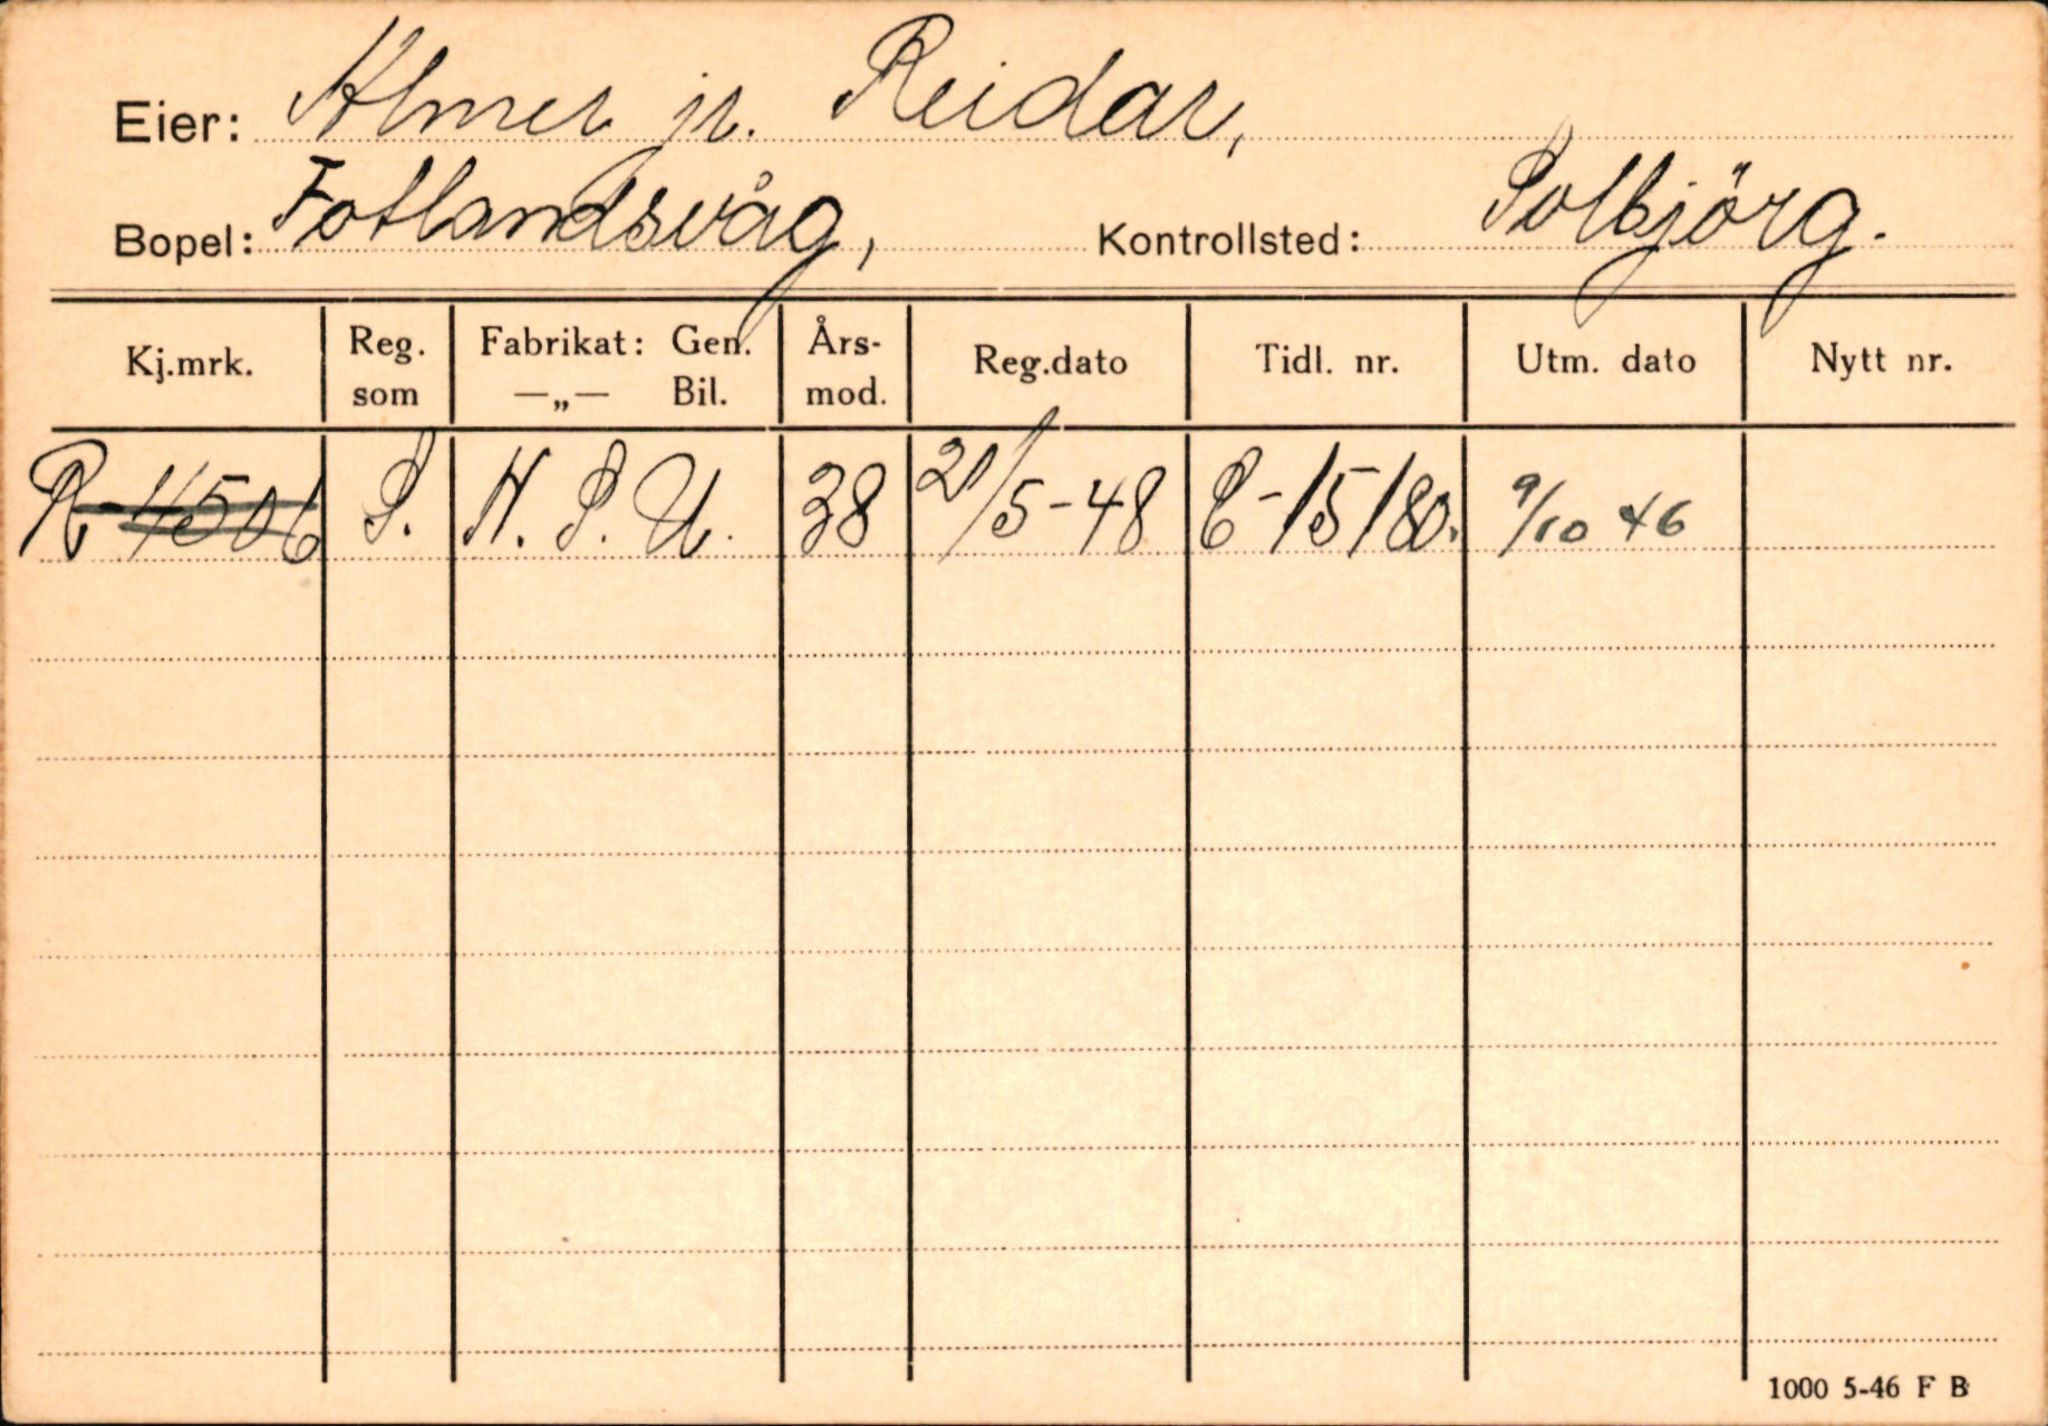 Eier: Almer jr. Reidar,
Bopel: Fotlandsvåg, Kontrollsted: Solbjörg.
Kj.mrk. Reg. som Fabrikat: Gen. —„— Bil. Års- mod. Reg.dato Tidl. nr. Utm. dato Nytt nr.
R-4506 S. N.S.U. 38 21/5-48 C-15180. 9/10 46
1000 5-46 F B